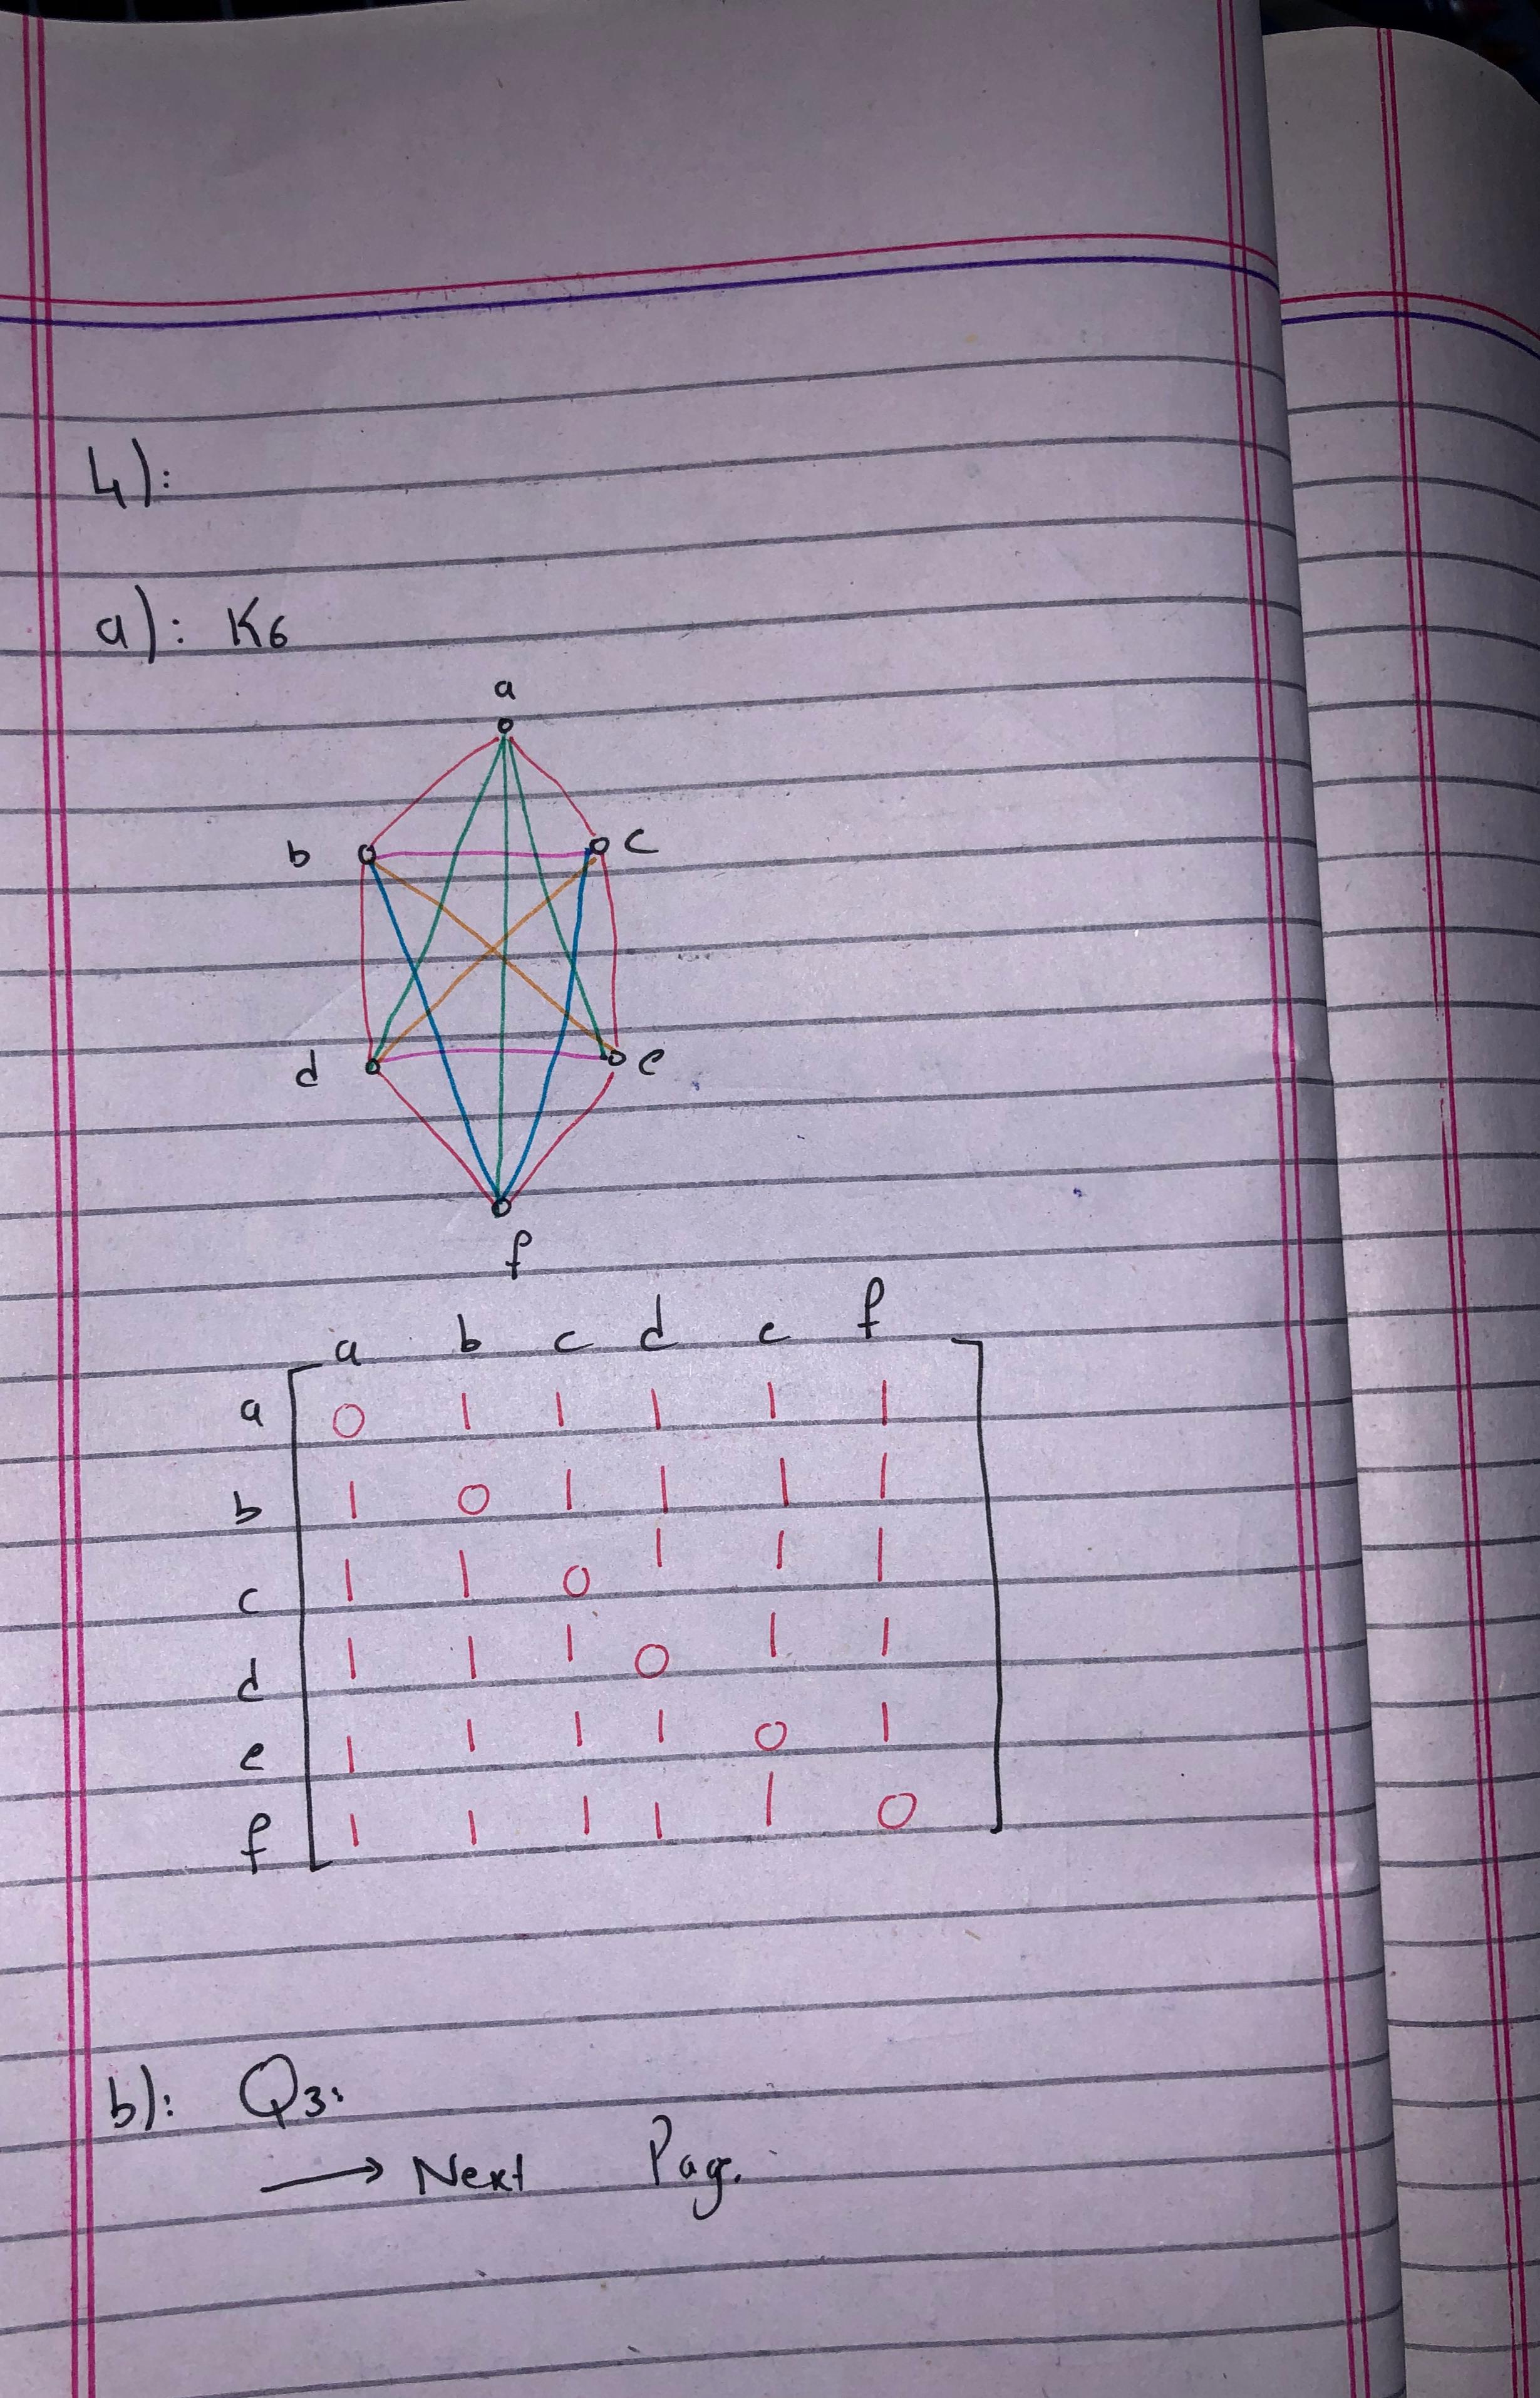 4):
a): K6
a
b
c
d
e
f
a b c d e f
a 0 1 1 1 1 1
b 1 0 1 1 1 1
c 1 1 0 1 1 1
d 1 1 1 0 1 1
e 1 1 1 1 0 1
f 1 1 1 1 1 0
b): Q3:
→ Next Page.